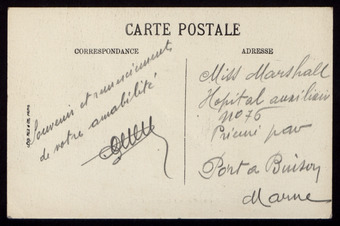 CARTE POSTALE
CORRESPONDANCE
ADRESSE
Souvenir et remerciements
de votre amabilité
Miss Marshall
Hopital auxiliair
no 76
Prieuré par
Port a Binson
Marne